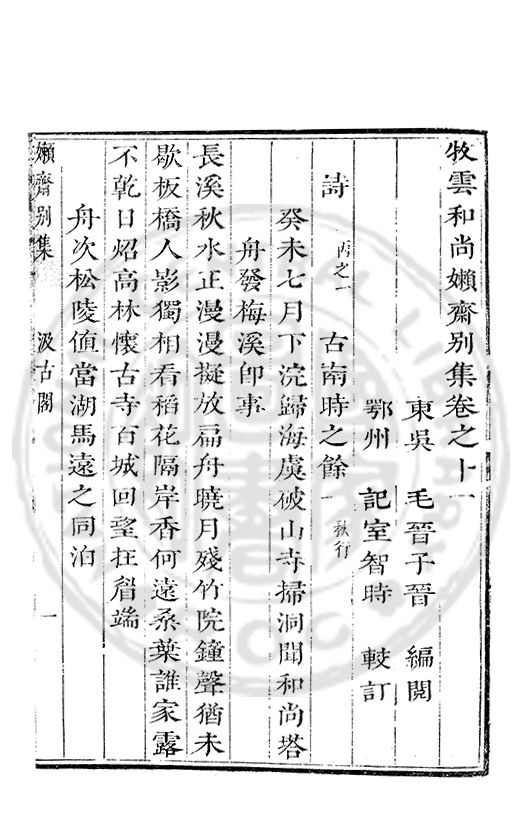 牧雲和尚嬾齋別集卷之十一
東吳　毛晉子晉　編閱
鄂州　記室智時　較訂
詩　丙之一　古南時之餘一　秋行
癸未七月下浣歸海虞破山寺掃洞聞和尚塔
舟發梅溪卽事
長溪秋水正漫漫擬放扁舟曉月殘竹院鐘聲猶未
歇板橋人影獨相看稻花隔岸香何遠桑葉誰家露
不乾日炤高林懷古寺百城回望在眉端
舟次松陵值當湖馬遠之同泊
嬾齋別集　汲古閣　一